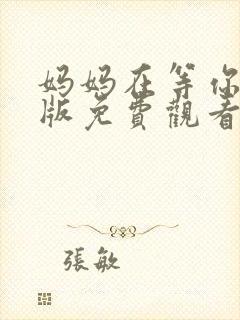 妈妈在等你
版免費觀看
張敏